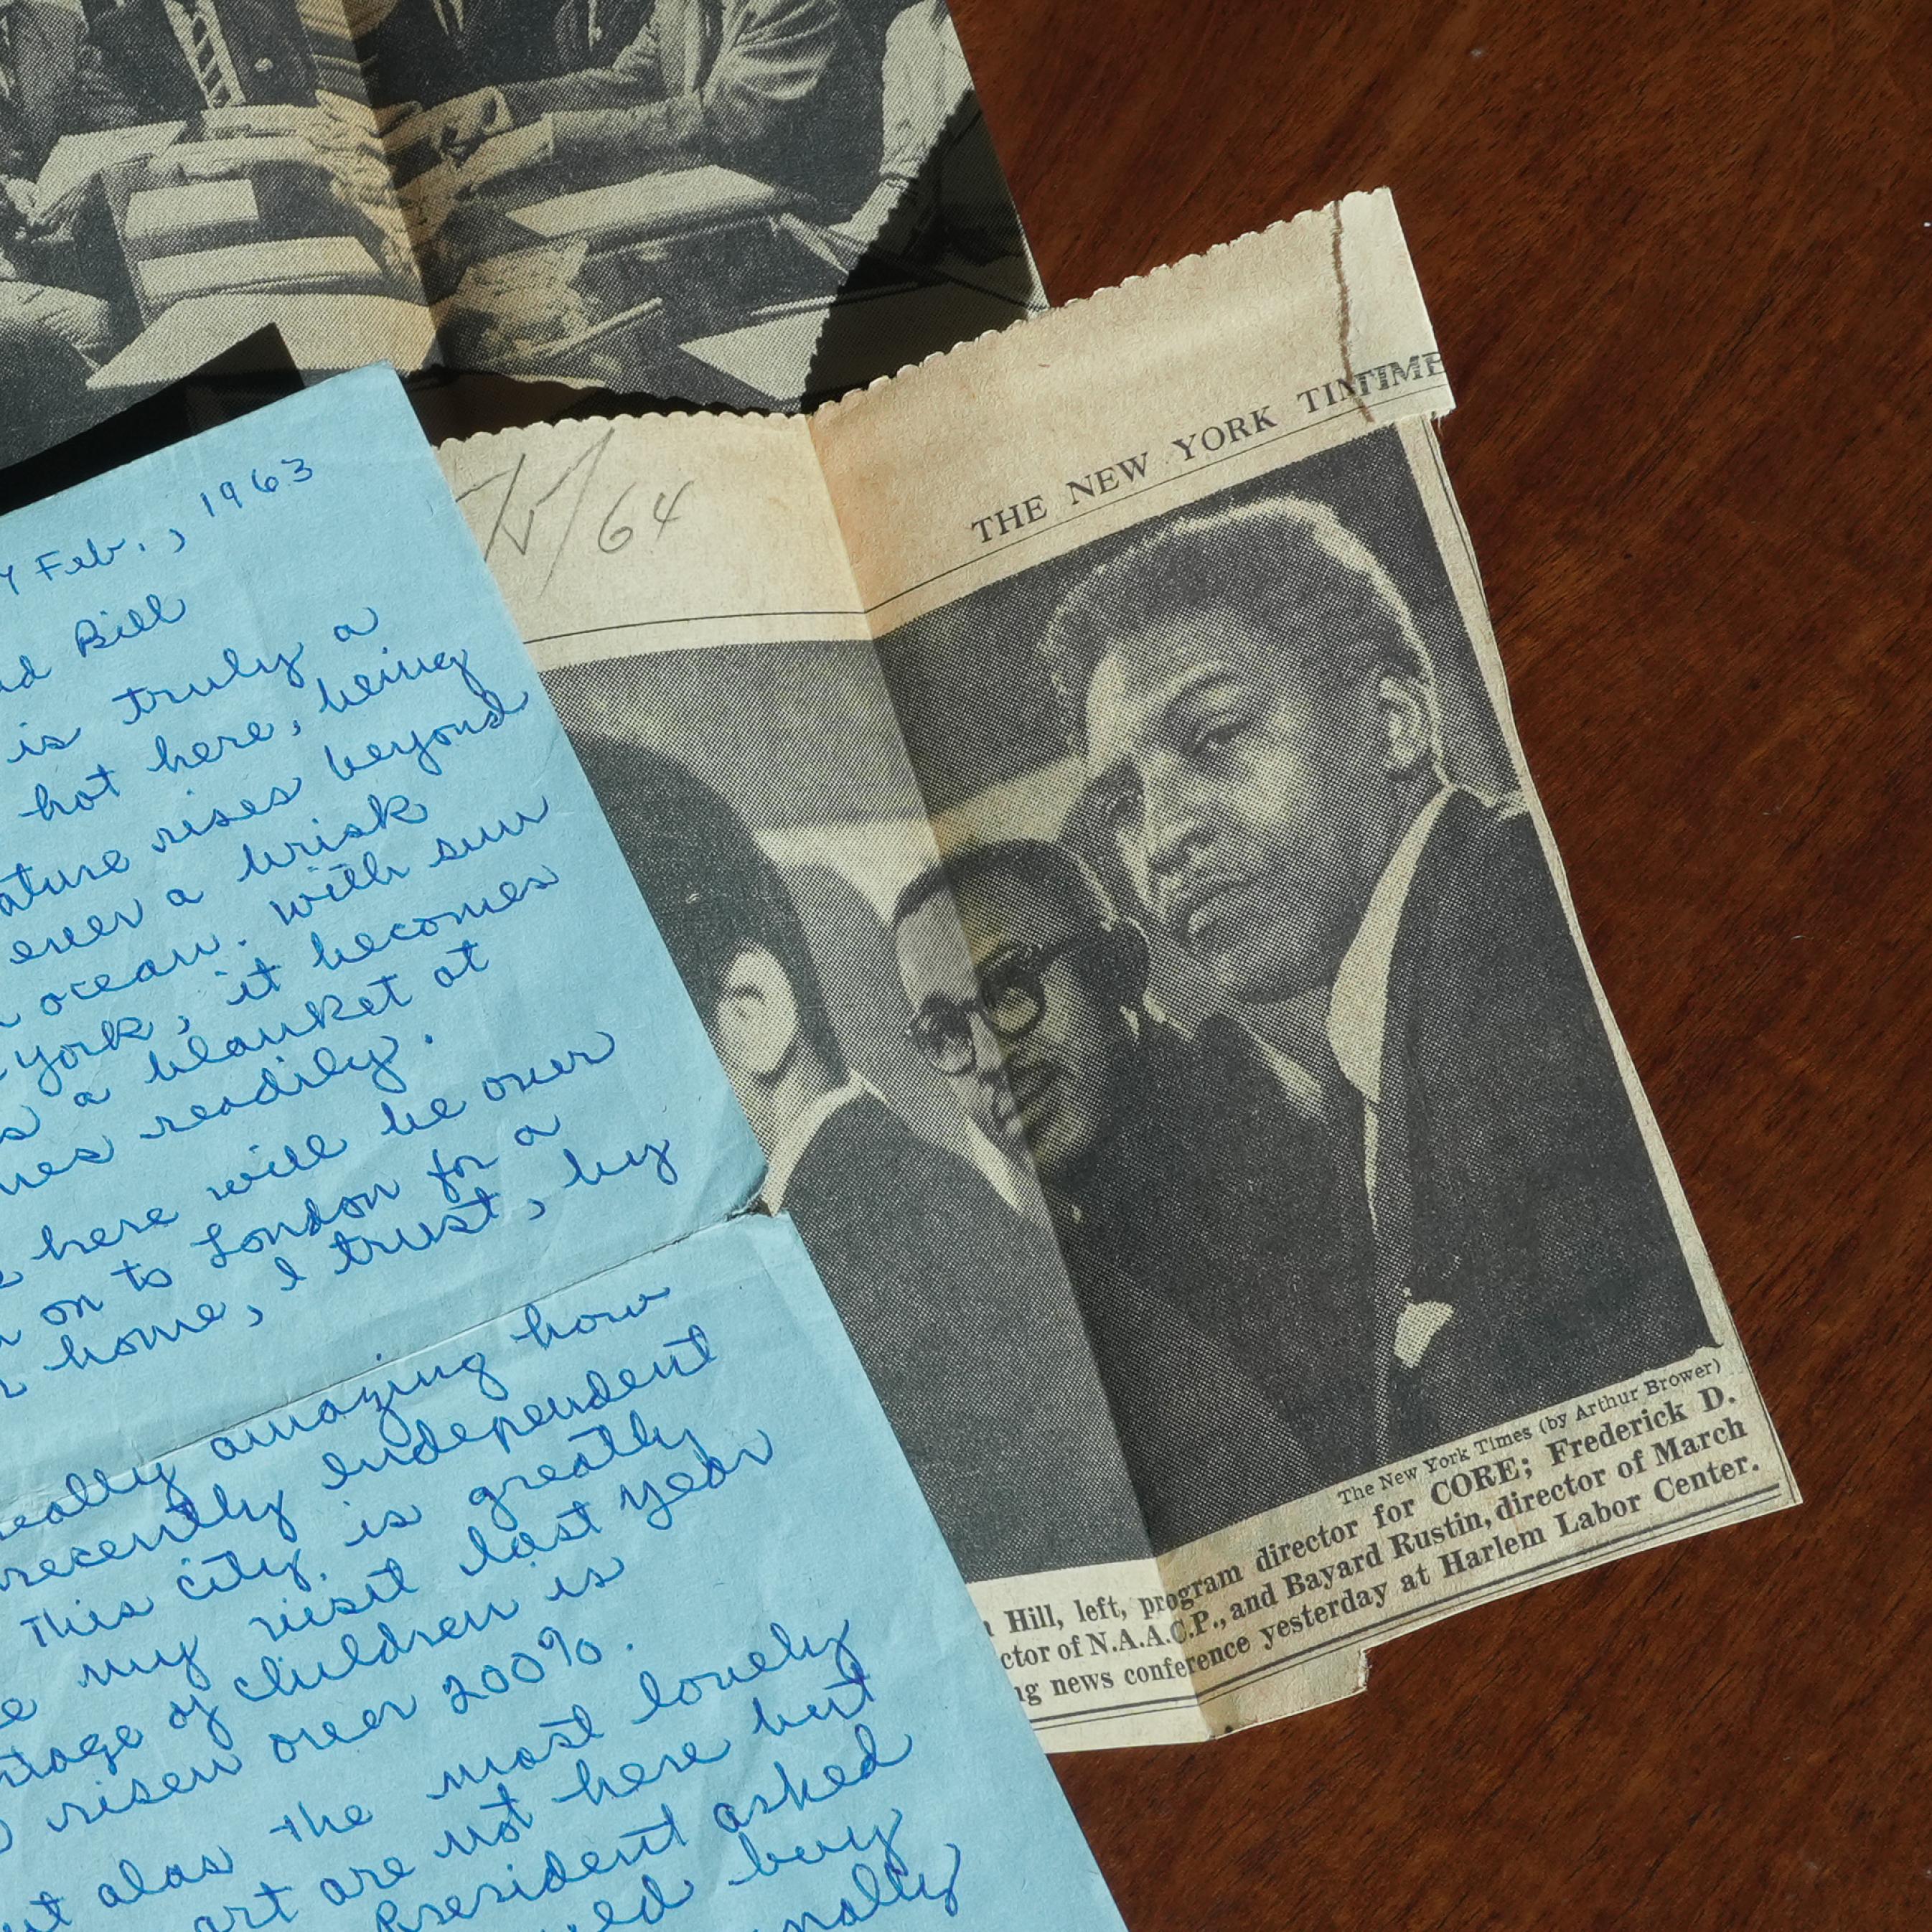 Feb., 1963
Bill
is truly a
hot here, being
ature rises beyond
ever a brisk
ocean. With sun
York, it becomes
s a blanket at
nes readily.
here will be over
on to London for a
home, I trust, by
eally amazing how
recently independent
This city, is greatly
my visit last year
ntage of children is
risen over 200%.
ut alas the most lovely
art are not here but
President asked
buy
64
THE NEW YORK TIM
TIME
The New York Times (by Arthur Brower)
Hill, left, program director for CORE; Frederick D.
ctor of N.A.A.C.P., and Bayard Rustin, director of March
ng news conference yesterday at Harlem Labor Center.